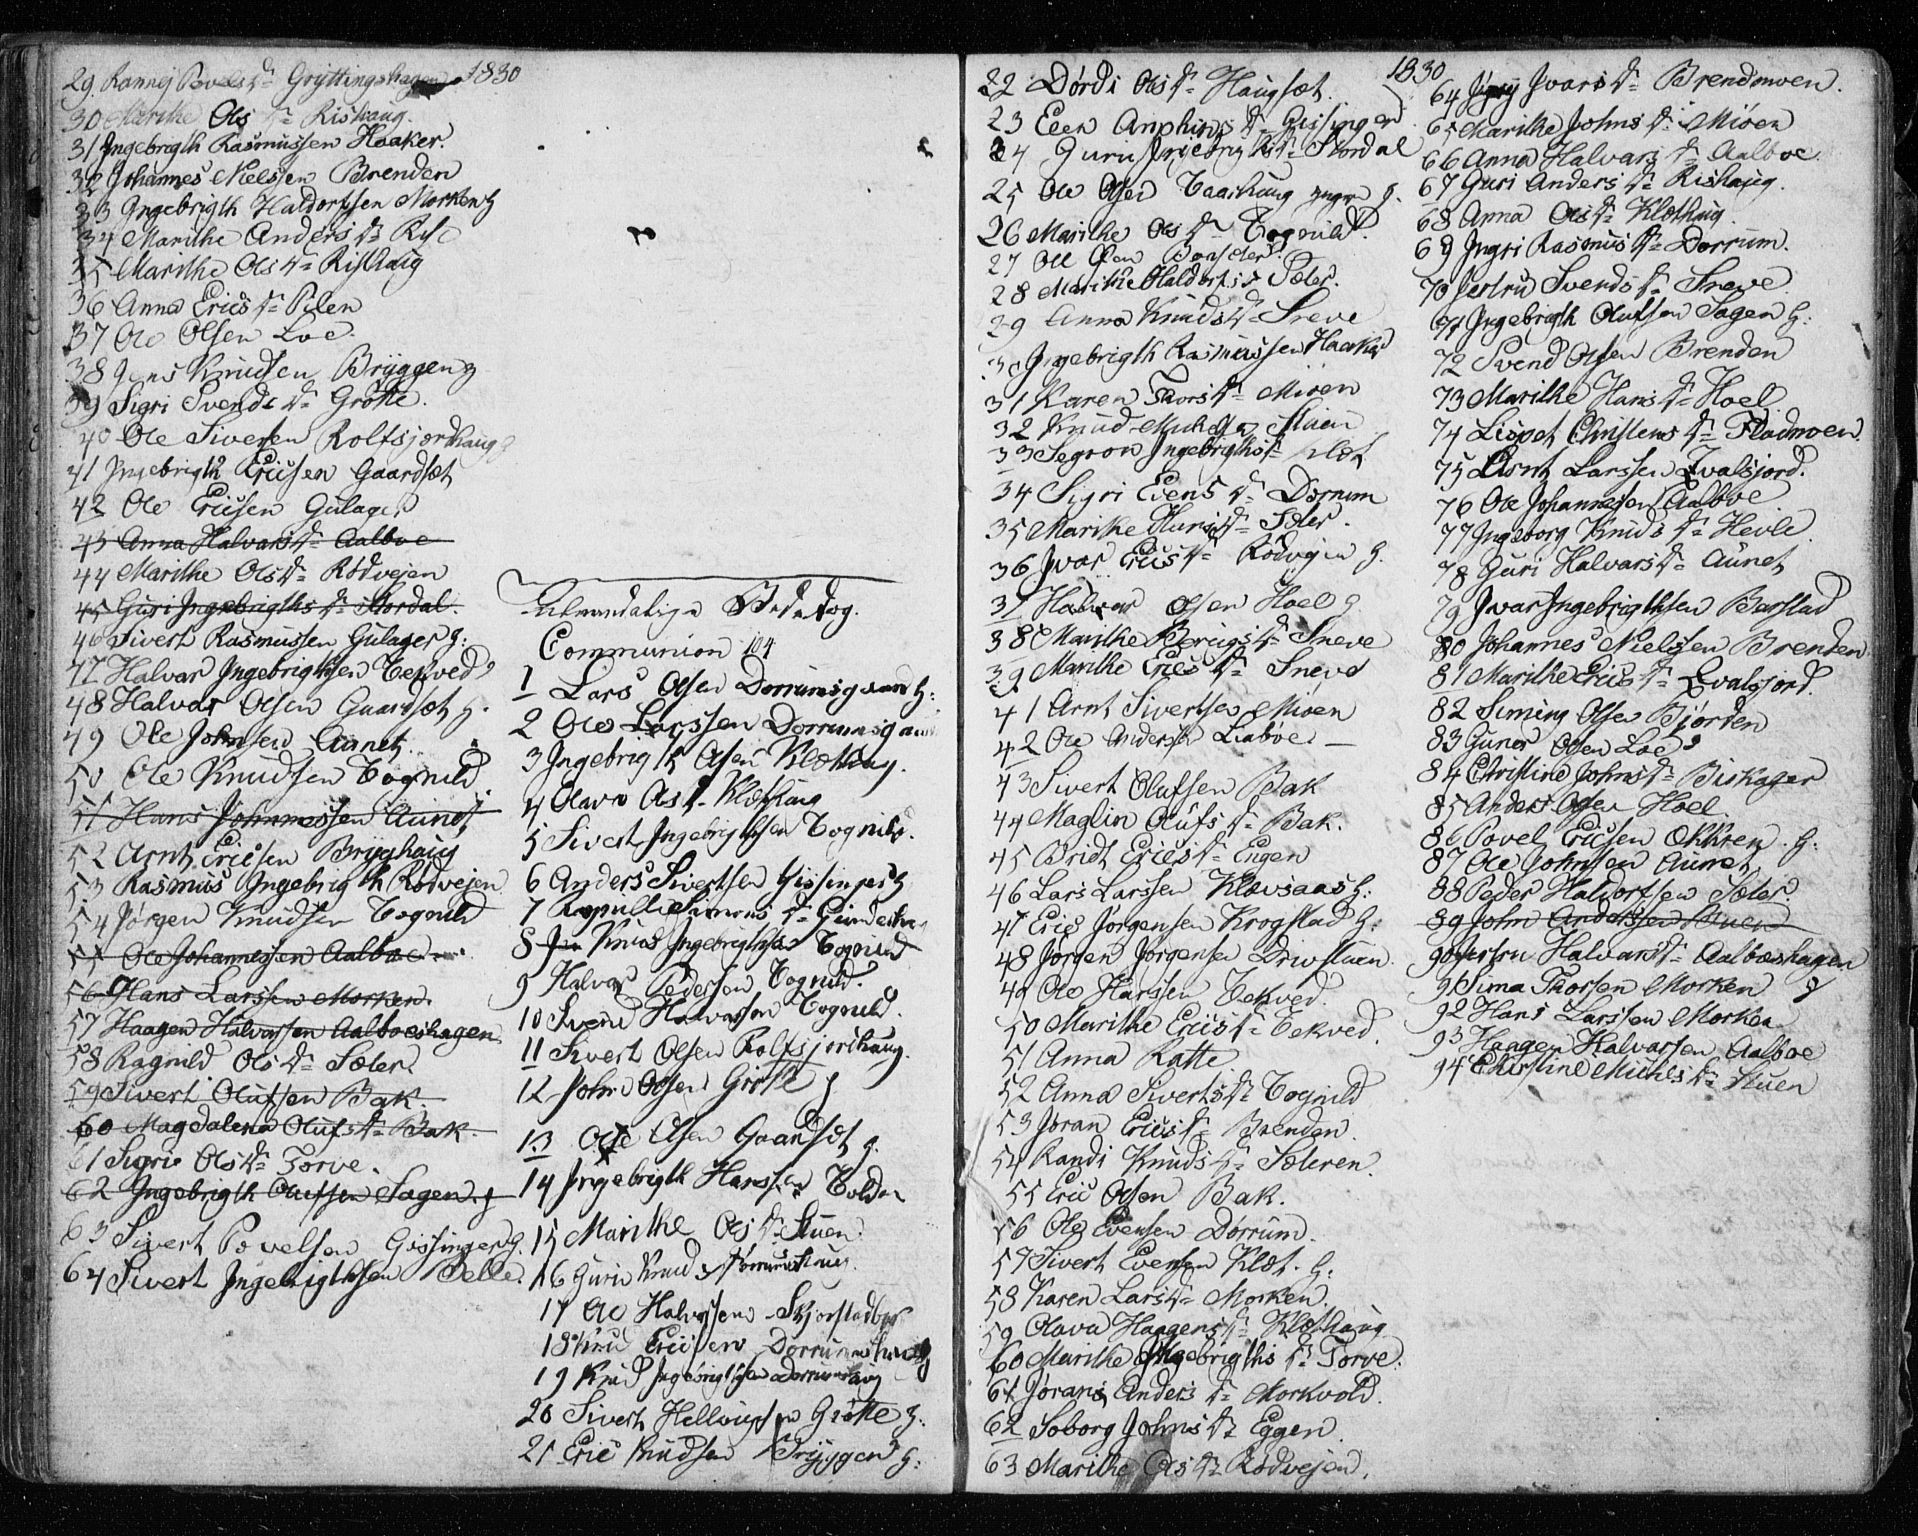 1830
29 Rannej Povels Dr Gryttingshagen
30 Marithe Ols Dr Rishaug.
31 Ingebrigth Rasmussen Haaker.
32 Johannes Nielssen Brenden
33 Ingebrigth Haldorssen Morken g
34 Marithe Anders Dr Rise
35 Marithe Ols Dr Rishaug
36 Anna Erics Dr
37 Ole Olsen Loe.
38 Jens Knudsen Bryggen g
39 Sigri Svends Dr Grøtte.
40 Ole Sivertsen Rolfsjordhaug g
41 Ingebrigth Ericsen Gaardsæt
42 Ole Ericsen Gulager
43 Anna Halvars Dr Aalboe
44 Marithe Ols Dr Rødvejen
45 Guri Ingebrigths Dr Stordal.
46 Sivert Rasmussen Gulager g:
47 Halvar Ingebrigthsen Tekved g
48 Halvar Olsen Gaardsæt g.
49 Ole Johnsen Aunet.
50 Ole Knudsen Tognild.
51 Hans Johannessen Aunet
52 Arnt Ericsen Brygghaug
53 Rasmus Ingebrigth Rødvejen
54 Jørgen Knudsen Tognild
55 Ole Johannessen Aalboe
56 Hans Larssen Morken.
57 Haagen Halvarssen Aalboeshagen
58 Ragnild Ols Dr Sæter.
59 Sivert Olufsen Bak.
60 Magdalena Olufs Dr Bak.
61 Sigri Ols Dr Torve.
62 Ingebrigth Olufsen Sagen g
63 Sivert Povelsen Gissinger g.
64 Sivert Ingebrigthsen Selle.
Almindelige Bededag.
Communion 104
1 Lars Olsen Dorrumsgaard g:
2 Ole Larssen Dorrumsgaard
3 Ingebrigth Olsen Klæthaug.
4 Olava Ols Dr Klæthaug
5 Sivert Ingebrigthsen Tognild.
6 Anders Sivertsen Gissinger g
7 Simens Dr
8 Knud Ingebrigthsen Tognild
9 Halvar Pedersen Tognild.
10 Svend Halvarssen Tognild.
11 Sivert Olsen Rolfsjordhaug.
12 John Olsen Grøtte g
13 Ole Olsen Gaardsæt g.
14 Ingebrigth Hanssen Volden
15 Marithe Ols Dr Stuen.
16 Guri Knuds Dr Dørrumshaug.
17 Ole Halvarssen
18 Knud Ericsen Dorrumshaug
19 Knud Ingebrigthsen Dorrumshaug
20 Sivert Hellovssen Grøtte g.
21 Eric Knudsen Bryggen g.
1830
22 Dordi Ols Dr Haugsæt.
23 Elen Amphins Dr Gissinger
24 Guru Ingebrigths Dr Stordal
25 Ole Olsen Taarhaug yngre g.
26 Marithe Ols Dr Tognild.
27 Ole Olsen
28 Marithe Haldors Dr Sæter.
29 Anna Knuds Dr Sneve
30 Ingebrigth Rasmussen Haaker
31 Karen Thors Dr Mioen
32 Knud Stuen
33 Segron Ingebrigths Dr Klæt
34 Sigri Evens Dr Dorrum
35 Marithe Dr Sæter.
36 Ivar Erics Dr Rødvejen g.
37 Halvar Olsen Hoel g
38 Marithe Dr Sneve
39 Marithe Erics Dr Sneve
41 Arnt Sivertsen Mioen
42 Ole Anderssen Liaboe.
43 Sivert Olufsen Bak
44 Maglin Olufs Dr Bak.
45 Bridt Erics Dr Engen
46 Lars Larssen Klevsaas g:
47 Eric Jørgensen Krogstad g:
48 Jørgen Jørgensen Drivstuen
49 Ole Harssen Tekved.
50 Marithe Erics Dr Tekved.
51 Anna Ratte
52 Anna Siverts Dr Tognild
53 Joran Erics Dr Brenden
54 Randi Knuds Dr Sæteren.
55 Eric Olsen Bak.
56 Ole Evensen Dørrum.
57 Sivert Evensen Klæt. g:
58 Karen Lars Dr Morken.
59 Olava Haagens Dr Klæthaug
60 Marithe Ingebrigths Dr Torve.
61 Joran Anders Dr Morkvold.
62 Soborg Johns Dr Eggen.
63 Marithe Ols Dr Rødvejen.
64 Ivars Dr Brendmoen.
65 Marithe Johns Dr Mioen
66 Anna Halvars Dr Aalboe
67 Guri Anders Dr Rishaug.
68 Anna Ols Dr Klæthaug.
69 Ingri Rasmus Dr Dorrum.
70 Jertru Svends Dr Sneve.
71 Ingebrigth Olufsen Sagen g:
72 Svend Olsen Brenden
73 Marithe Hans Dr Hoel
74 Lispet Christens Dr Flodmoen.
75 Arnt Larssen Evalsjord.
76 Ole Johannessen Aalboe
77 Ingeborg Knuds Dr Hevle.
78 Guri Halvars Dr Aunet
79 Ivar Ingebrigthsen Barstad
80 Johannes Nielssen Brenden
81 Marithe Erics Dr Evalsjord.
82 Siming Olsen Bjørden
83 Guner Olsen Loe g
84 Christine Johns Dr Biskager
85 Anders Olsen Hoel
86 Povel Ericsen Ekkren. g.
87 Ole Johnsen Aunet
88 Peder Haldorssen Sæter.
89 John Anderssen Stuen
90 Jertru Halvars Dr Aalboeshagen
91 Sima Thorssen Morken g
92 Hans Larssen Morken
93 Haagen Halvarssen Aalboe
94 Christine Michels Dr Stuen